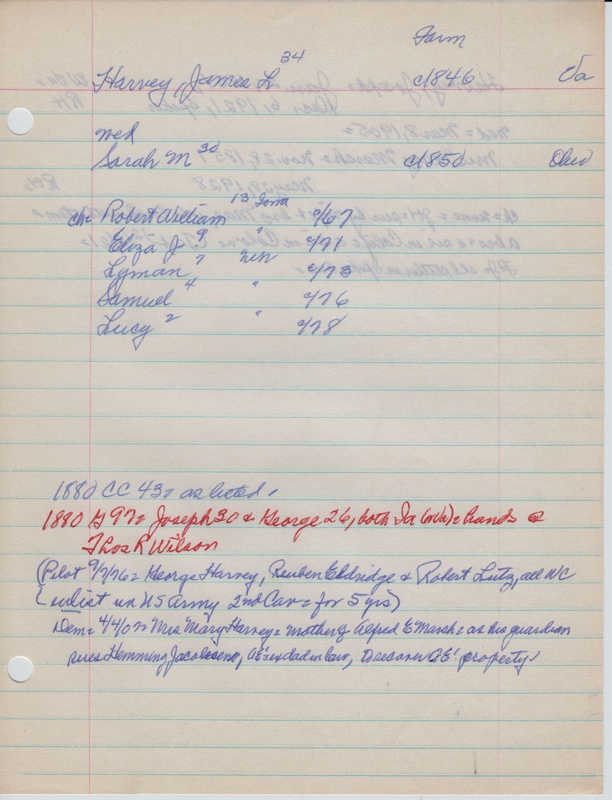 Farm
Harvey, James L 34 c1846 Va
wed
Sarah M 30 c1850 Ohio
ch= Robert William 13 Iowa c/67
Eliza J 9 " c/71
Lyman 7 Neb c/73
Samuel 4 " c/76
Lucy 2 " c/78
1880 CC 43= as listed.
1880 G 97= Joseph 30 & George 26, both Ia (or Va)= hands @
Thos R Wilson
(Pilot 9/7/76= George Harvey, Reuben Eldridge & Robert Lutz, all NC
(enlist in US Army 2nd Cav= for 5 yrs)
Dem= 4/40= Mrs Mary Harvey= mother of Alfred E Marsh= as his guardian
sues Hemming Jacobsene, AE's in law, to recover AE' property.